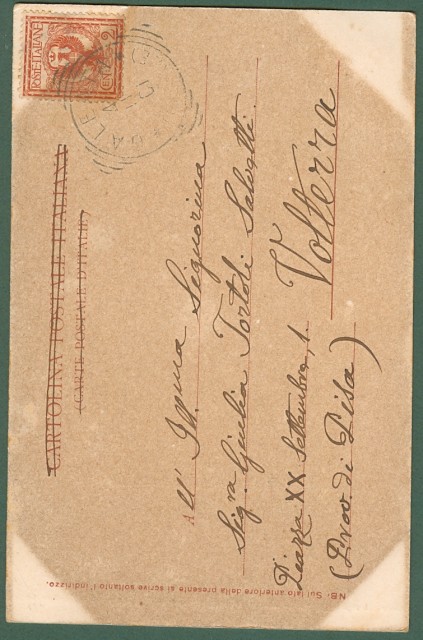 POSTE ITALIANE
CENT. 2
CARTOLINA POSTALE ITALIANA
(CARTE POSTALE D'ITALIE)
All' Ill.ma Signorina
Sig.ra Giulia Tortoli Salvetti.
Piazza XX Settembre, 1.
Volterra
(Prov. di Pisa)
NB - Sul lato anteriore della presente si scrive soltanto l'indirizzo.